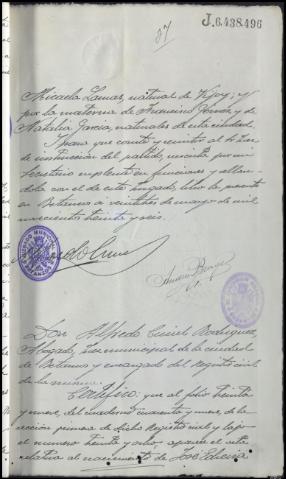 87
J.6.438.496
Micaela Lamas, natural de; y
por la materna de Francisco y de
Natalia Garcia, naturales de esta ciudad.
Y para que conste y remitir al Sr. Juez
de instrucción del partido, visada por mi
Secretario suplente en funciones y sellan-
dola con el de este Juzgado, libro la presente
en Betanzos a veintiseis de mayo de mil
novecientos treinta y seis.
Don Alfredo Rodriguez,
Abogado, Juez municipal de la ciudad
de Betanzos y encargado del Registro civil
de la misma.
Certifico: que al folio treinta
y nueve, del cuaderno cuarenta y nueve, de la
sección primera de dicho Registro civil y bajo
el numero treinta y ocho, aparece el acta
relativa al nacimiento de José